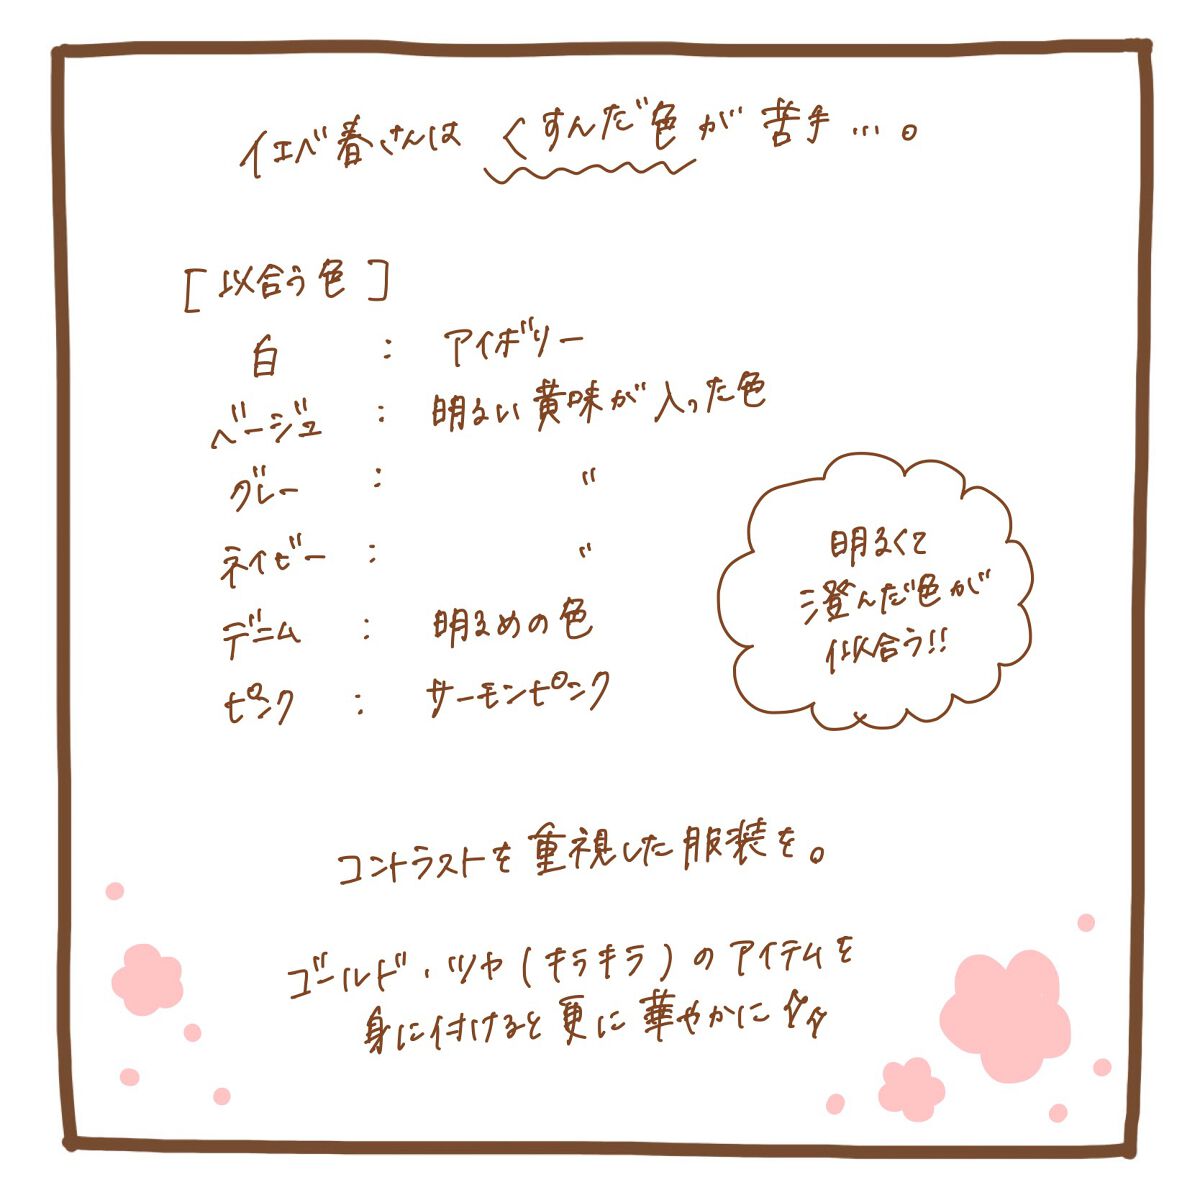 イエベ春さんは くすんだ色が苦手…。
[似合う色]
白 : アイボリー
ベージュ : 明るい黄味が入った色
グレー : 〃
ネイビー : 〃
デニム : 明るめの色
ピンク : サーモンピンク
明るくて
澄んだ色が
似合う!!
コントラストを重視した服装を。
ゴールド・ツヤ(キラキラ)のアイテムを
身に付けると更に華やかに